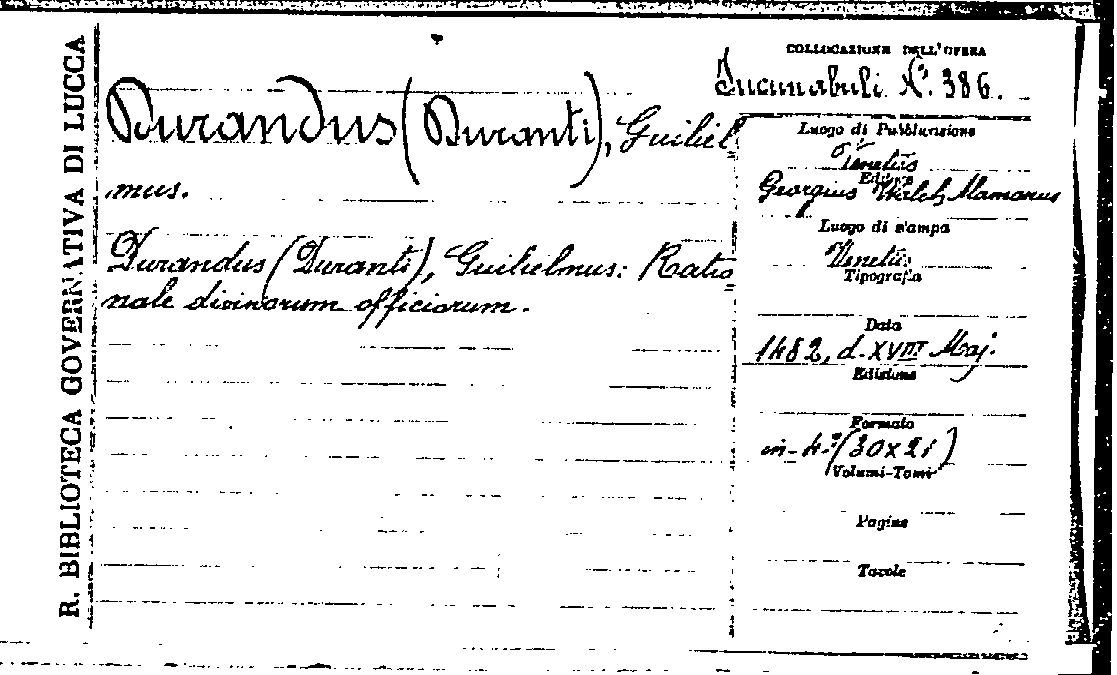 R. BIBLIOTECA GOVERNATIVA DI LUCCA
Durandus (Duranti), Guiliel=
mus.
Durandus (Duranti), Guilielmus: Ratio=
nale divinorum officiorum.
COLLOCAZIONE DELL'OPERA
Incunabuli N.º 386.
Luogo di Pubblicazione
Venetiis
Editore
Georgius Walch Alamanus
Luogo di stampa
Venetiis
Tipografia
Data
1482, d. XVIII Maj.
Edizione
Formato
in-4.º (30x21)
Volumi-Tomi
Pagine
Tavole